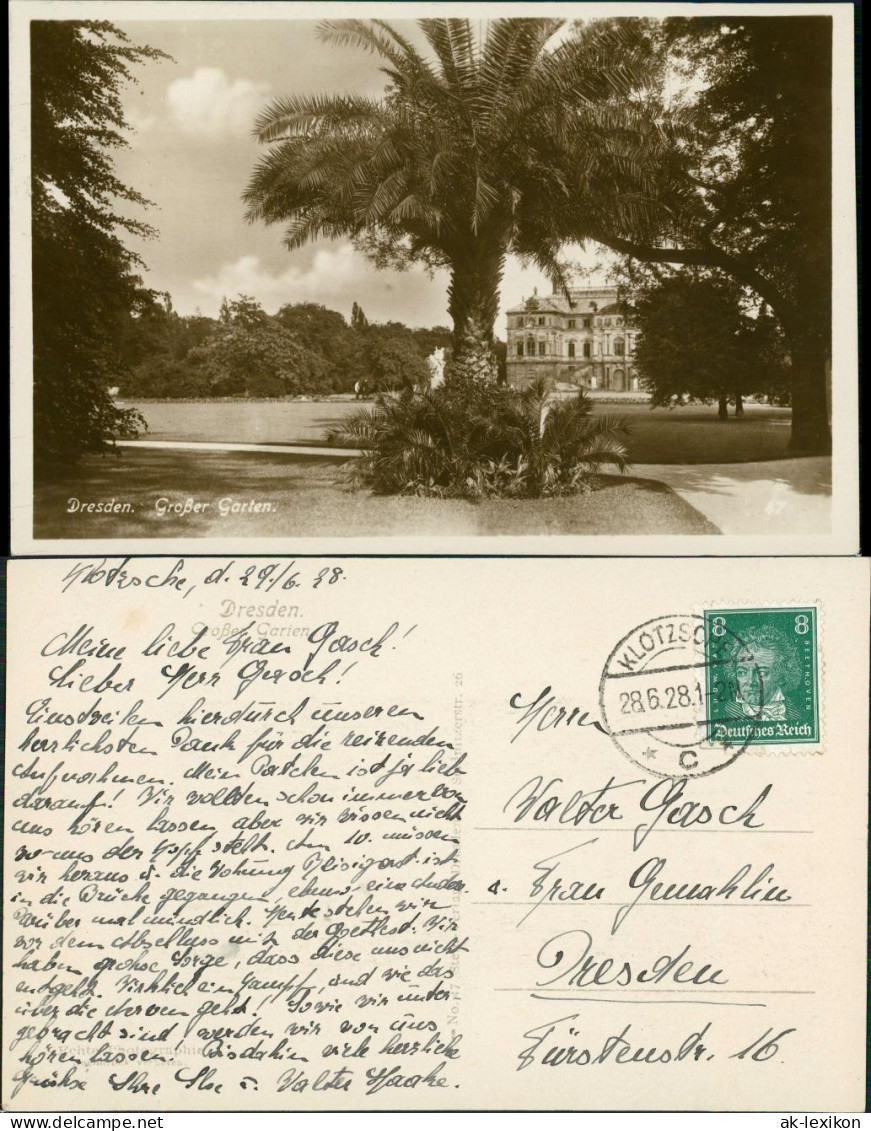 Dresden. Großer Garten.
47
Klotzsche, d. 29./6. 28.
Dresden.
Großer Garten
Meine liebe Frau Gasch!
Lieber Herr Gasch!
Einstweilen hierdurch unseren
herzlichsten Dank für die reizenden
Aufnahmen. Mein Patchen ist ja lieb
darauf! Wir wollten schon immer von
uns hören lassen, aber wir wissen nicht
wo uns der Kopf steht. Am 10. müssen
wir heraus u. die Wohnung ist
in die Brüche gegangen, ebenso eine andere.
Darüber mal mündlich. Heute stehen wir
vor dem Abschluss mit der Wir
haben grosse Sorge, dass diese uns nicht
entgeht. Wirklich ein Kampf, und wie das
über die Nerven geht! Sowie wir unter-
gebracht sind werden wir von uns
hören lassen. Bis dahin viele herzliche
Grüsse Ihre Ilse u. Walter Haake.
KLOTZSCHE
28.6.28.1
* C *
8 8
BEETHOVEN
Deutsches Reich
Herrn
Walter Gasch
u. Frau Gemahlin
Dresden
Fürstenstr. 16
ak-lexikon